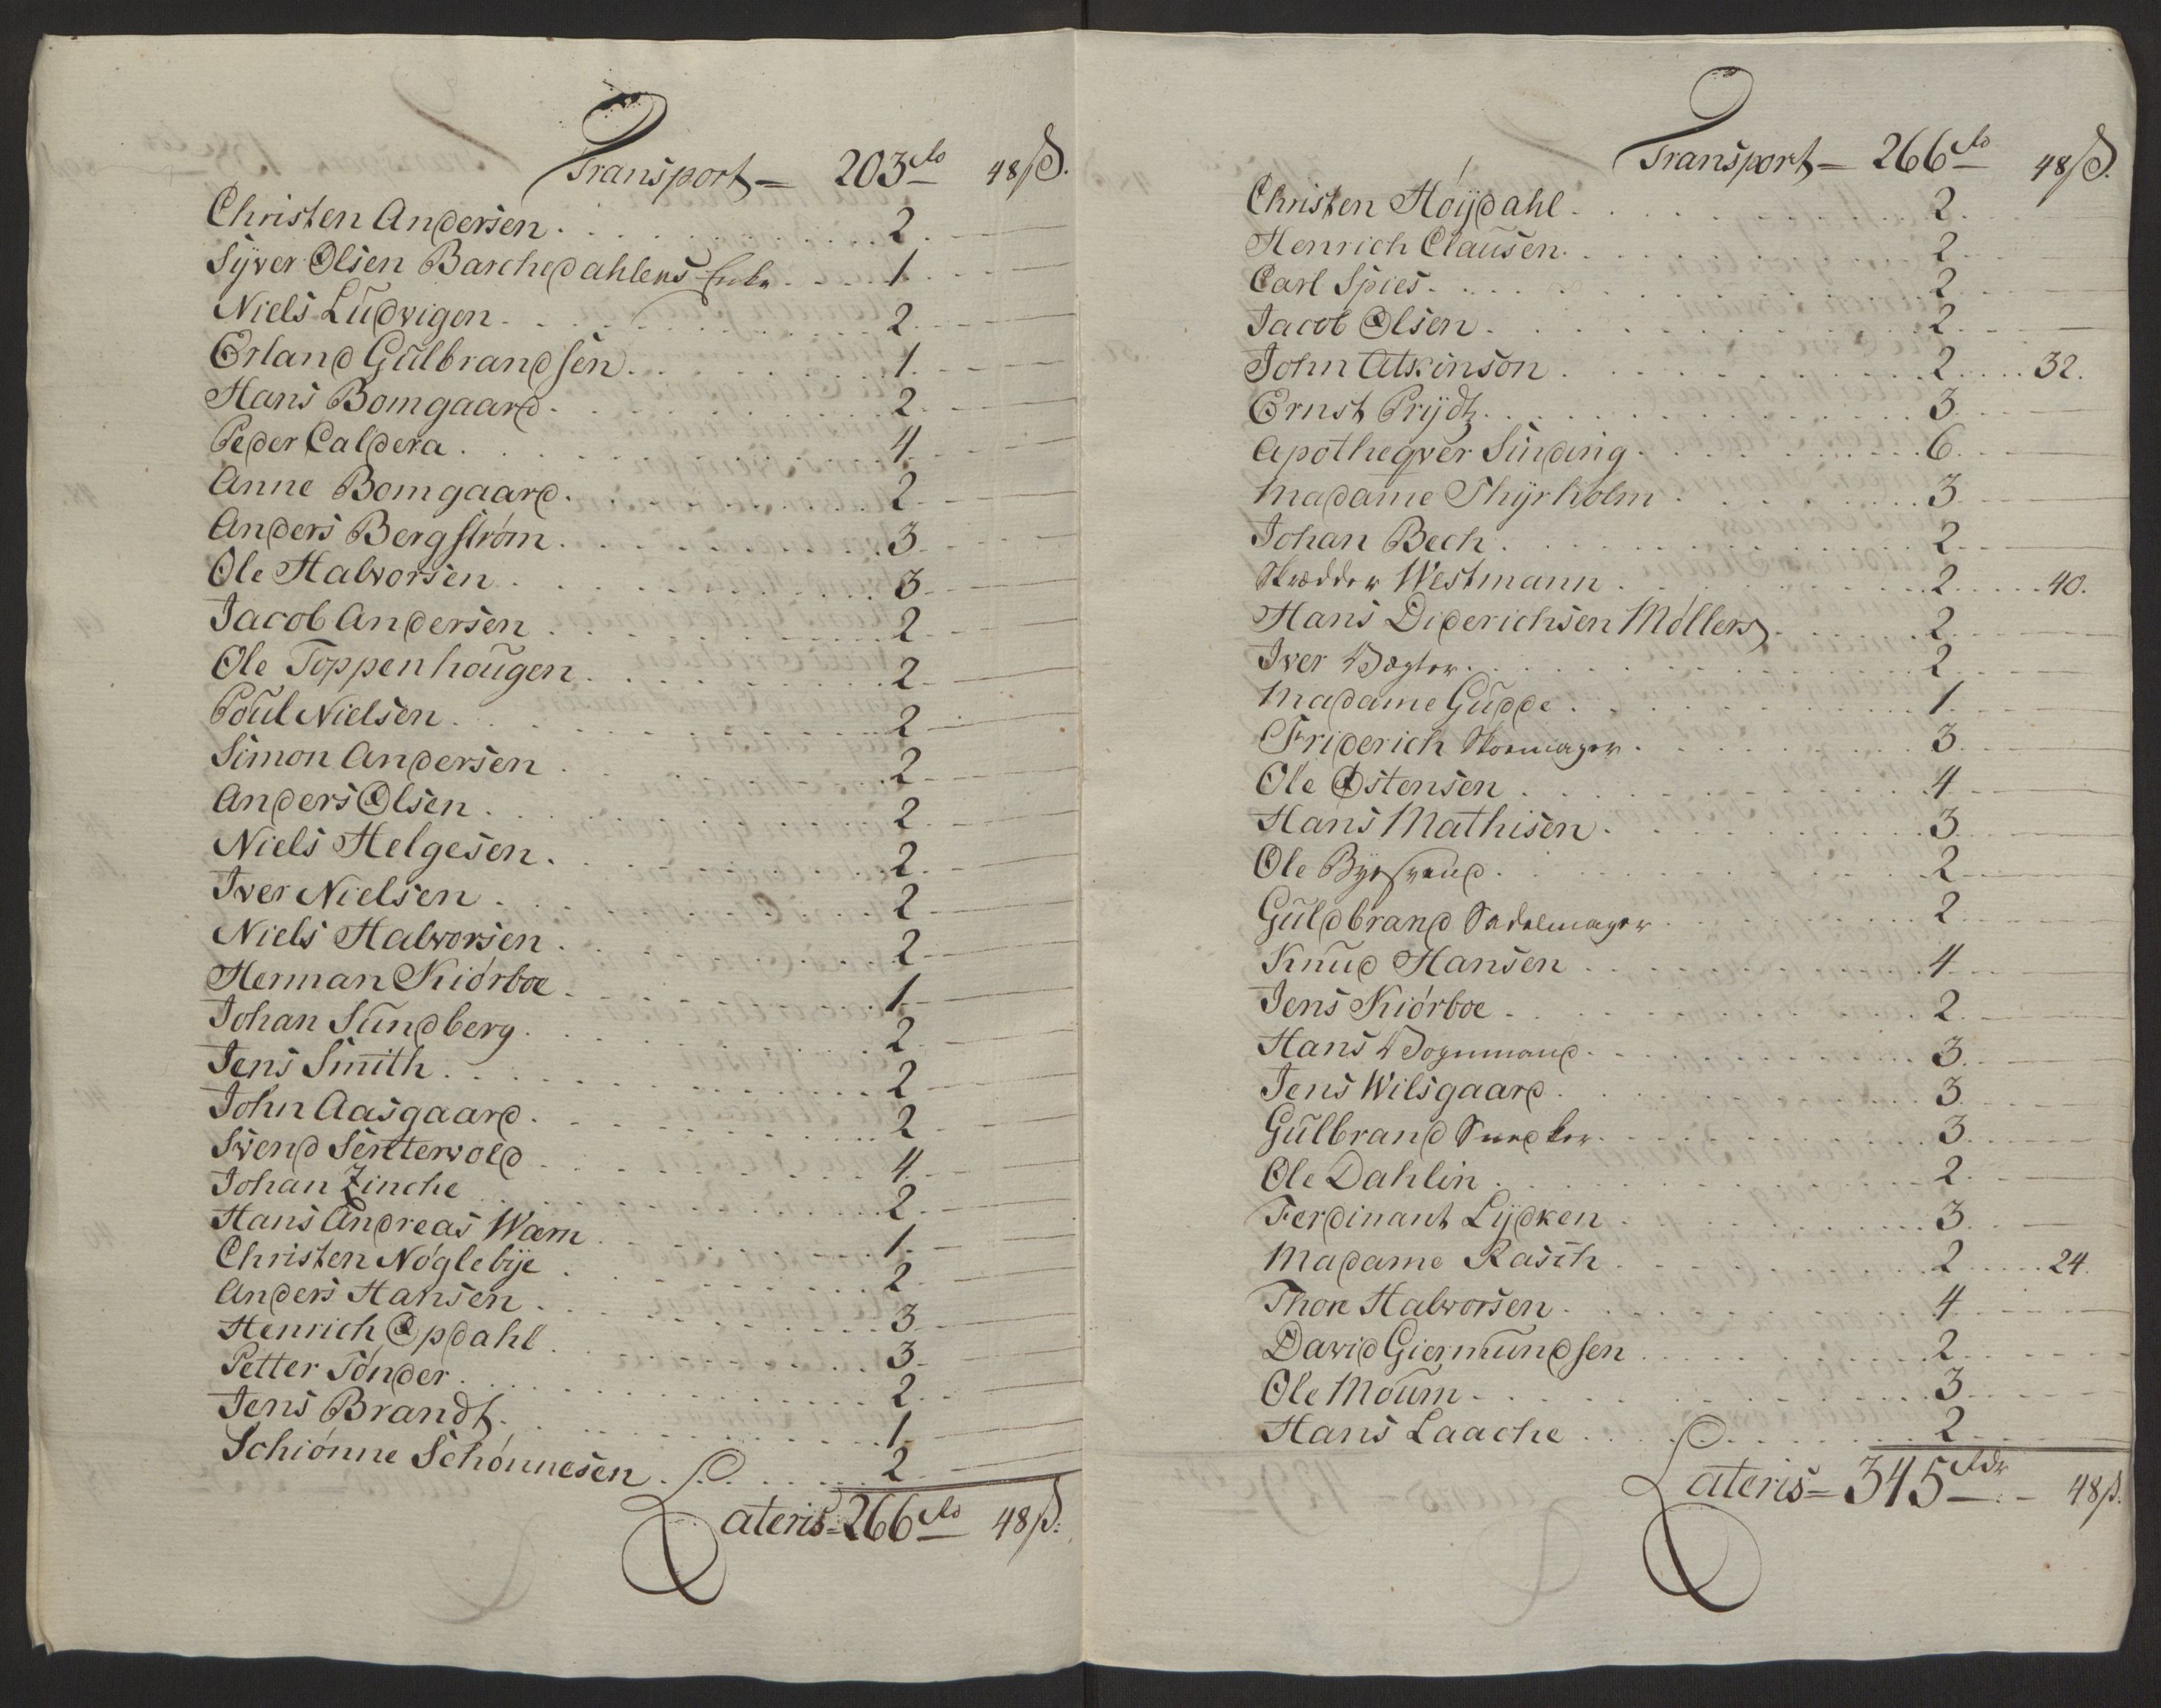 Transport = 203 rdr 48 ß.
Christen Andersen . . . 2
Sÿver Olsen Barchedahlens Enke . . . 1
Niels Ludvigen . . . 2
Erland Gulbrandsen . . . 1
Hans Bomgaard . . . 2
Peder Caldera . . . 4
Anne Bomgaard . . . 2
Anders Bergstrøm . . . 3
Ole Halvorsen . . . 3
Jacob Andersen . . . 2
Ole Toppenhougen . . . 2
Poul Nielsen . . . 2
Simon Andersen . . . 2
Anders Olsen . . . 2
Niels Helgesen . . . 2
Iver Nielsen . . . 2
Niels Halvorsen . . . 2
Herman Kiørboe . . . 1
Johan Sundberg . . . 2
Jens Smith . . . 2
John Aasgaard . . . 2
Svend Sentervold . . . 4
Johan Zinche . . . 2
Hans Andreas Wærn . . . 1
Christen Nøglebÿe . . . 2
Anders Hansen . . . 3
Henrich Opdahl . . . 3
Petter Tønder . . . 2
Jens Brandt . . . 1
Schiønne Schønnesen . . . 2
Lateris = 266 rdr 48 ß.
Transport = 266 rdr 48 ß.
Christen Høÿdahl . . . 2
Henrich Clausen . . . 2
Carl Spies . . . 2
Jacob Olsen . . . 2
John Atkinson . . . 2 . . . 32.
Ernst Prÿdtz . . . 3
Apotheqver Sinding . . . 6
Madame Thÿrholm . . . 3
Johan Bech . . . 2
Skrædder Westmann . . . 2 . . . 40.
Hans Diderichsen Møllers . . . 2
Iver Vægter . . . 2
Madame Gudde . . . 1
Friderich Skoemager . . . 3
Ole Ostensen . . . 4
Hans Mathisen . . . 3
Ole Byesvend . . . 2
Guldbrand Sadelmager . . . 2
Knud Hansen . . . 4
Jens Kiørboe . . . 2
Hans Vognmand . . . 3
Jens Wilsgaard . . . 3
Gulbrand Snedker . . . 3
Ole Dahlin . . . 2
Ferdinant Lÿdken . . . 3
Madame Rasch . . . 2 . . . 24.
Thore Halvorsen . . . 4
David Giermundsen . . . 2
Ole Moum . . . 3
Hans Laache . . . 2
Lateris = 345 rdr 48 ß.